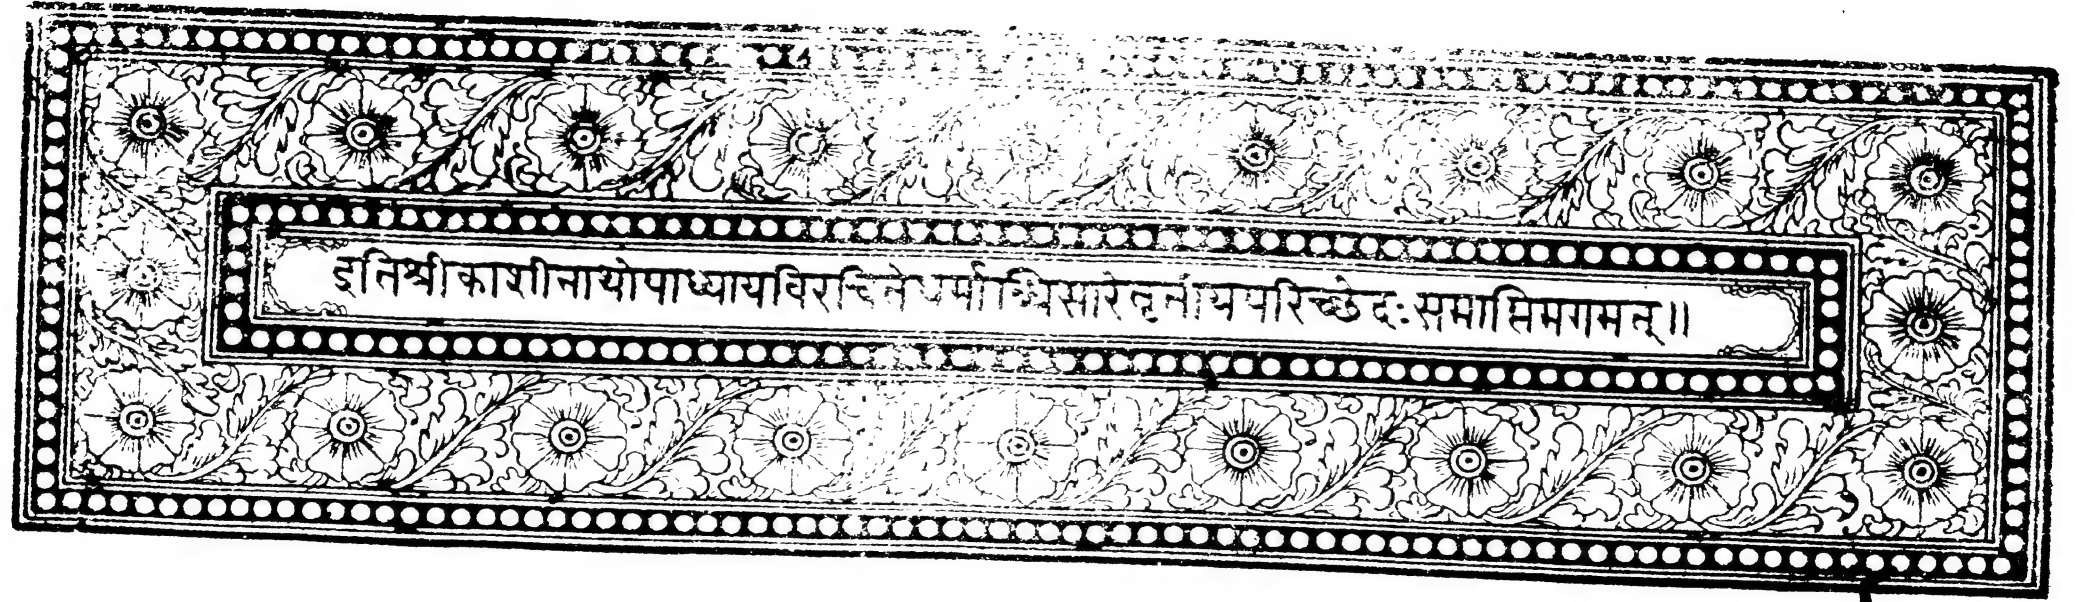 इतिश्रीकाशीनाथोपाध्यायविरचितेधर्माब्धिसारेतृतीयपरिच्छेदःसमाप्तिमगमत्॥